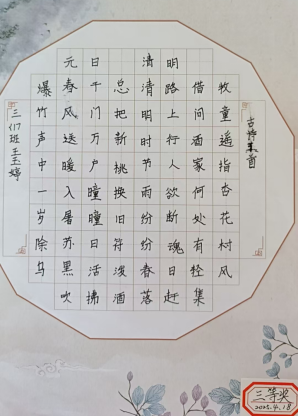 元日
爆竹声中一岁除
春风送暖入屠苏
千门万户曈曈日
总把新桃换旧符
清明
清明时节雨纷纷
路上行人欲断魂
借问酒家何处有
牧童遥指杏花村
乌黑活泼春日轻风
吹拂洒落赶集
古诗首
班王玉婷
三等奖
4.18